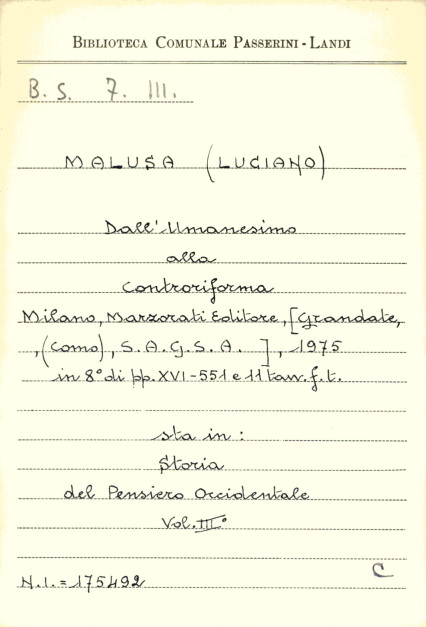 BIBLIOTECA COMUNALE PASSERINI - LANDI
B. S. 7. III.
MALUSA (LUCIANO)
Dall'Umanesimo
alla
Controriforma
Milano, Marzorati Editore, [Grandate,
,(Como), S.A.G.S.A. ], 1975
in 8° di pp. XVI-551 e 11 tavv. f. t.
sta in :
Storia
del Pensiero Occidentale
Vol. III°
N.I. = 175492
C